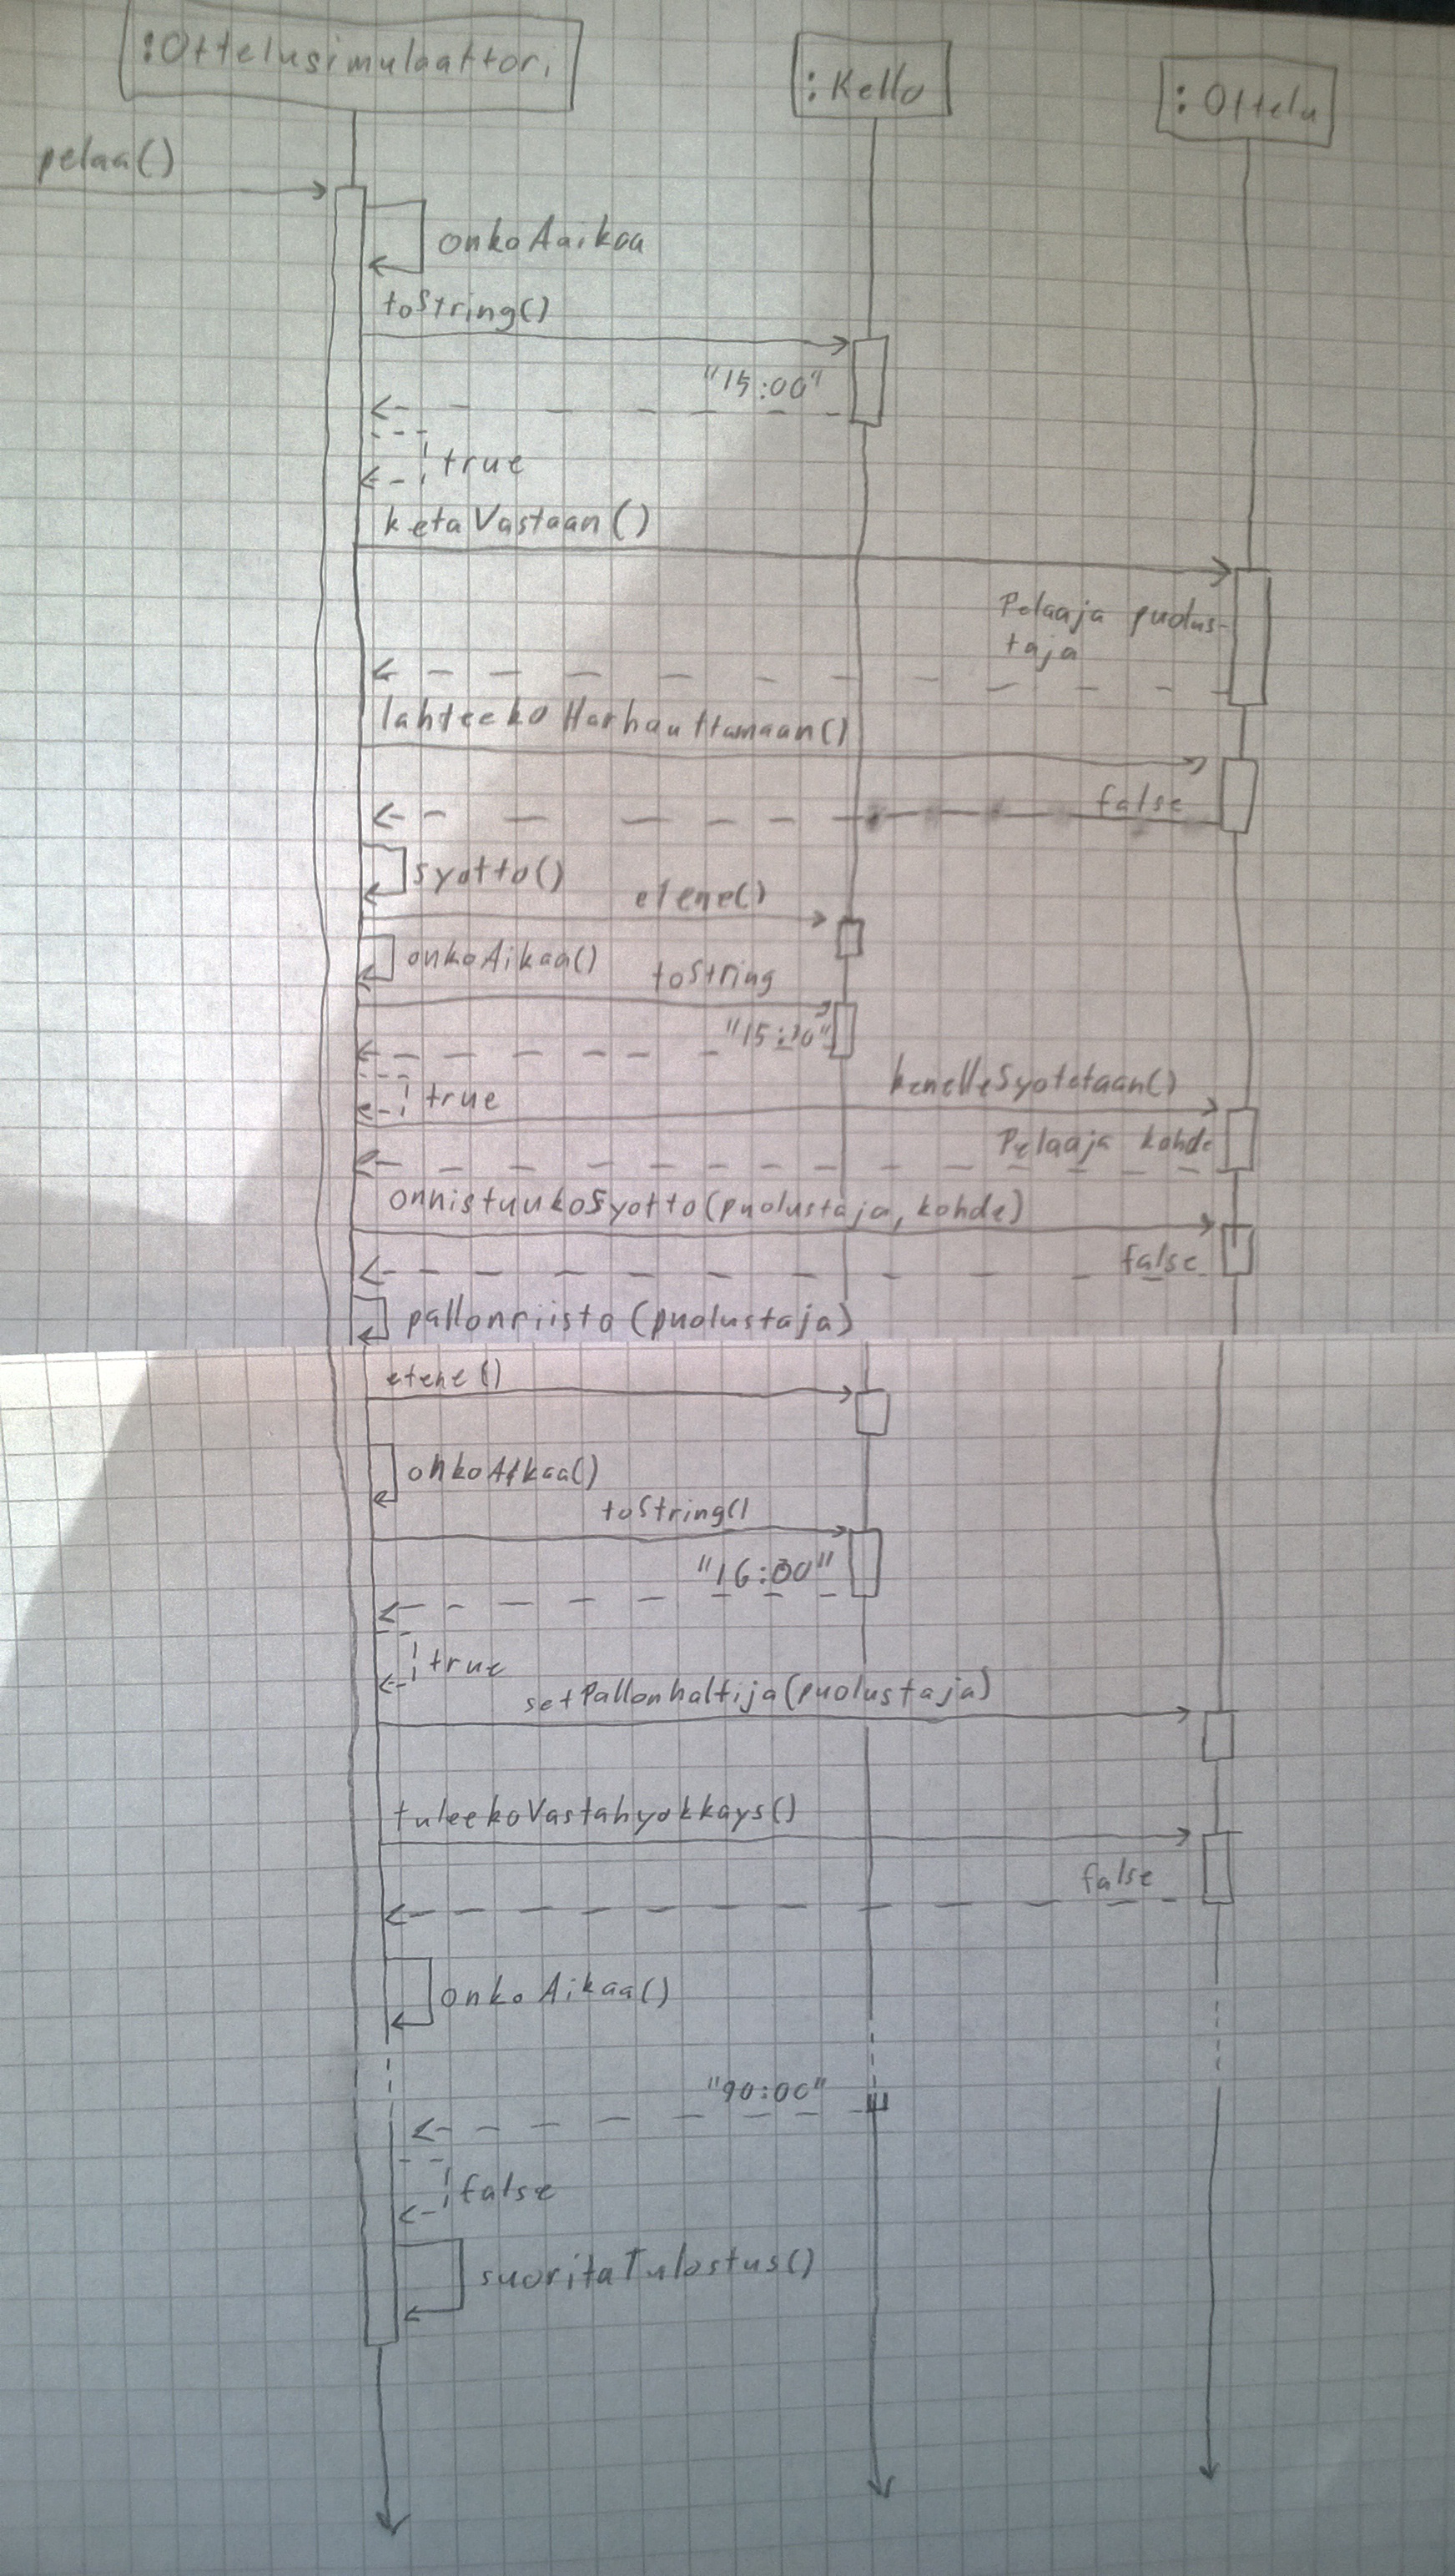 :Ottelusimulaattori
:Kello
:Ottelu
pelaa()
onkoAaikaa
toString()
"15:00"
true
ketaVastaan()
Pelaaja puolus-
taja
lahteekoHarhauttamaan()
false
syotto()
etene()
onkoAikaa()
toString
"15:30"
true
kenelleSyotetaan()
Pelaaja kohde
onnistuukoSyotto(puolustaja, kohde)
false
pallonriisto(puolustaja)
etene()
onkoAikaa()
toString()
"16:00"
true
setPallonhaltija(puolustaja)
tuleekoVastahyokkays()
false
onkoAikaa()
"90:00"
false
suoritaTulostus()